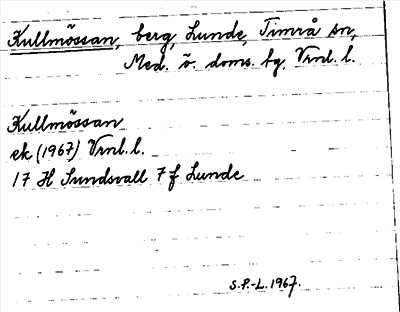 Kullmössan, berg, Lunde, Timrå sn,
Med. ö. doms. bg. Vrnl. l.
Kullmössan
ek (1967) Vrnl. l.
17 H Sundsvall 7 f Lunde
S.P.-L. 1967.